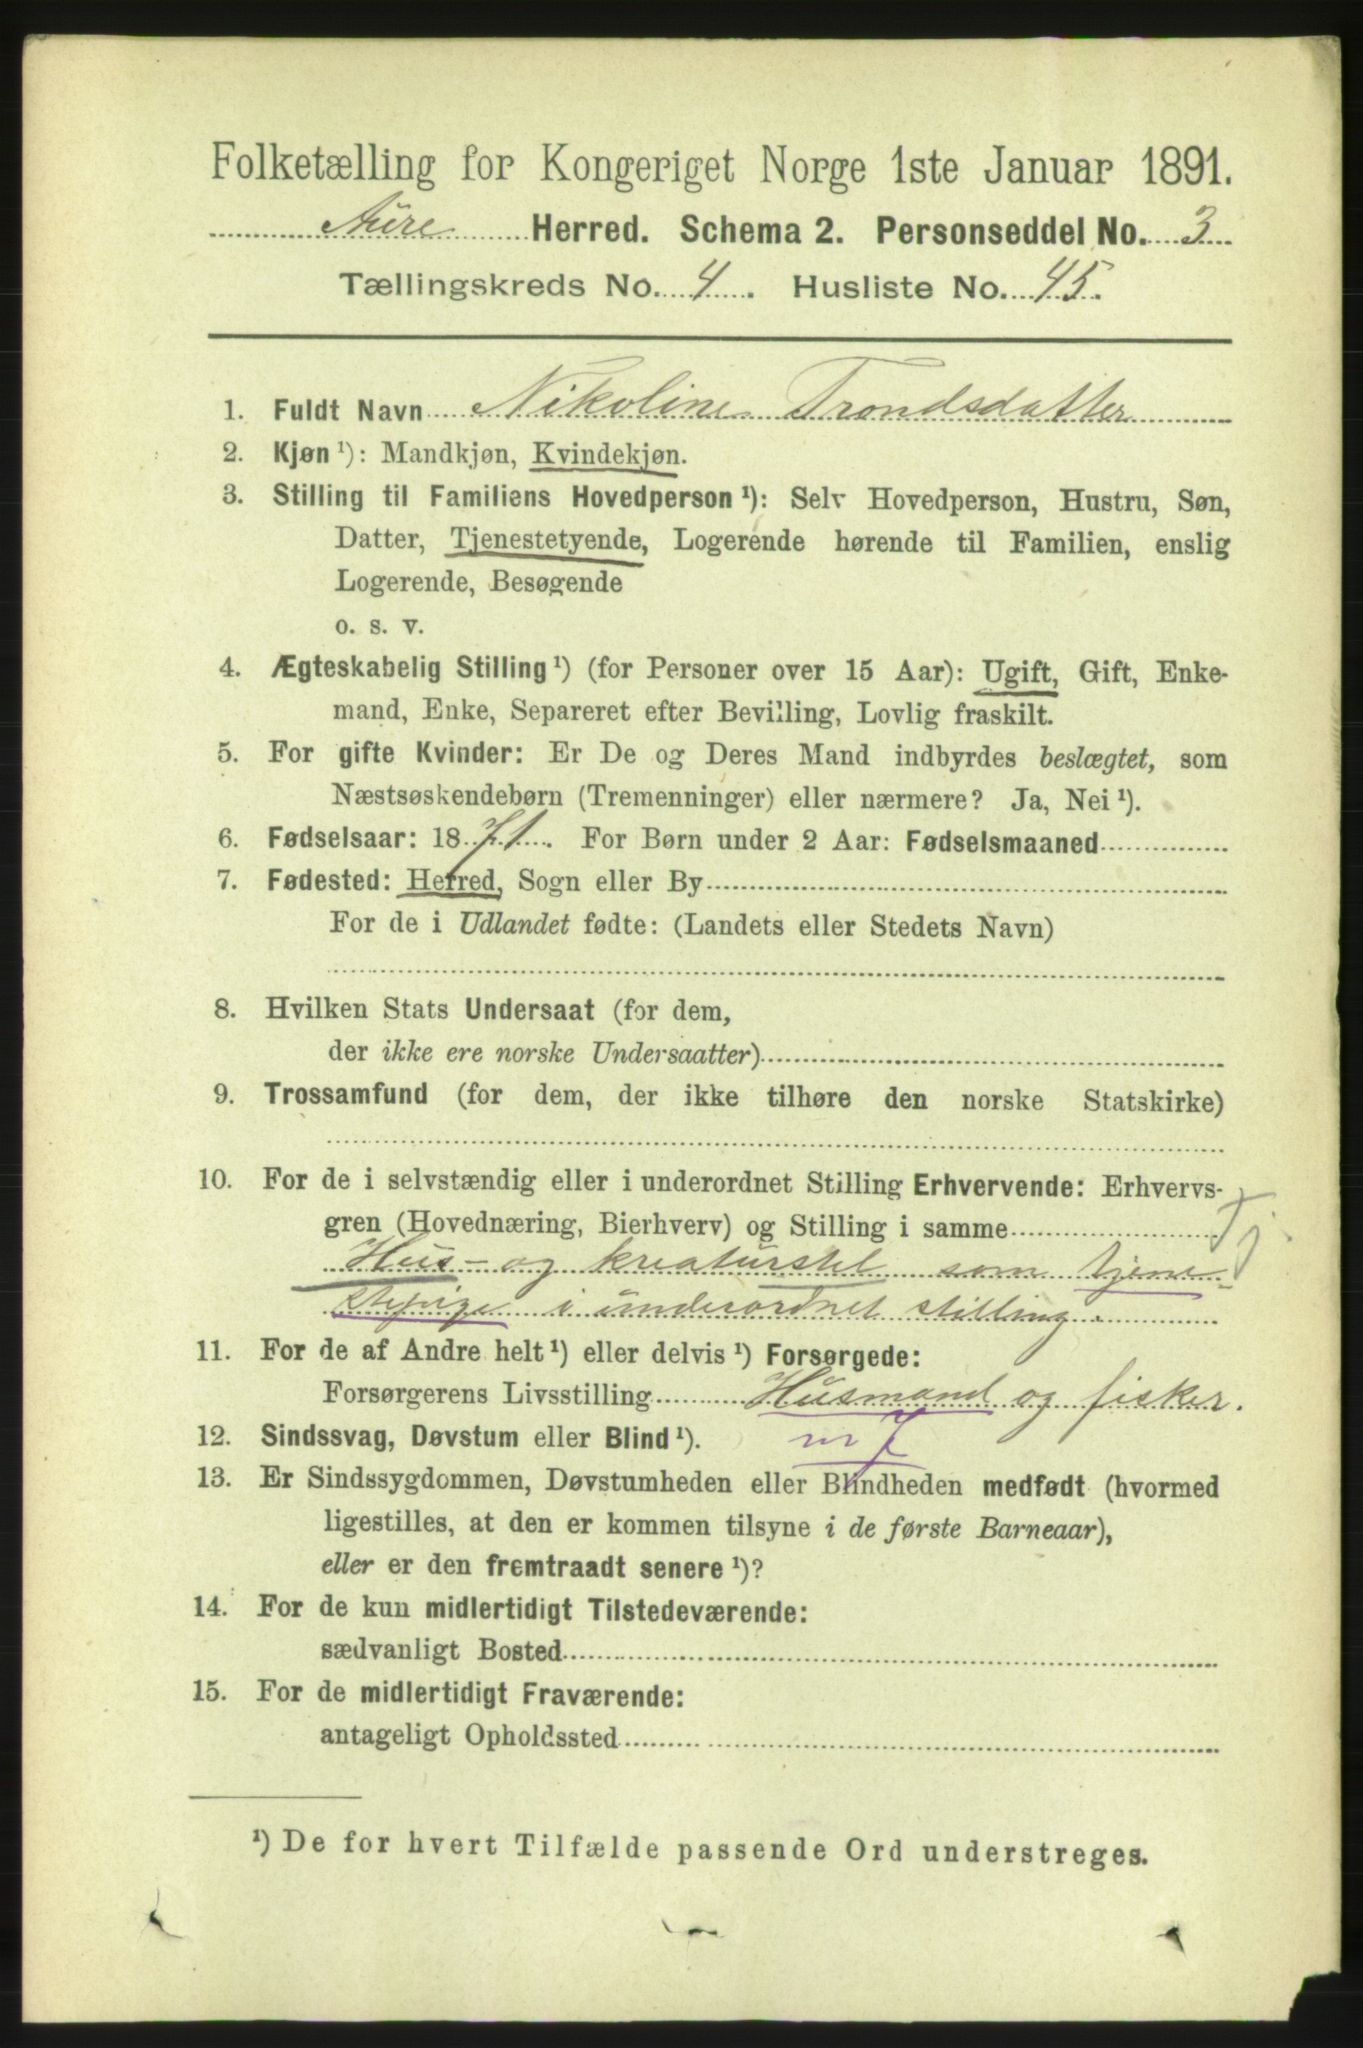 Folketælling for Kongeriget Norge 1ste Januar 1891.
Aure Herred. Schema 2. Personseddel No. 3
Tællingskreds No. 4. Husliste No. 45.
1. Fuldt Navn Nikoline Trondsdatter
2. Kjøn ¹): Mandkjøn, Kvindekjøn.
3. Stilling til Familiens Hovedperson ¹): Selv Hovedperson, Hustru, Søn,
Datter, Tjenestetyende, Logerende hørende til Familien, enslig
Logerende, Besøgende
o. s. v.
4. Ægteskabelig Stilling ¹) (for Personer over 15 Aar): Ugift, Gift, Enke-
mand, Enke, Separeret efter Bevilling, Lovlig fraskilt.
5. For gifte Kvinder: Er De og Deres Mand indbyrdes beslægtet, som
Næstsøskendebørn (Tremenninger) eller nærmere? Ja, Nei ¹).
6. Fødselsaar: 1871. For Børn under 2 Aar: Fødselsmaaned
7. Fødested: Herred, Sogn eller By
For de i Udlandet fødte: (Landets eller Stedets Navn)
8. Hvilken Stats Undersaat (for dem,
der ikke ere norske Undersaatter)
9. Trossamfund (for dem, der ikke tilhøre den norske Statskirke)
10. For de i selvstændig eller i underordnet Stilling Erhvervende: Erhvervs-
gren (Hovednæring, Bierhverv) og Stilling i samme Tj.
Hus- og kreaturstel som tjene-
stepige i underordnet stilling.
11. For de af Andre helt ¹) eller delvis ¹) Forsørgede:
Forsørgerens Livsstilling Husmand og fisker.
12. Sindssvag, Døvstum eller Blind ¹).
13. Er Sindssygdommen, Døvstumheden eller Blindheden medfødt (hvormed
ligestilles, at den er kommen tilsyne i de første Barneaar),
eller er den fremtraadt senere ¹)?
14. For de kun midlertidigt Tilstedeværende:
sædvanligt Bosted
15. For de midlertidigt Fraværende:
antageligt Opholdssted
¹) De for hvert Tilfælde passende Ord understreges.